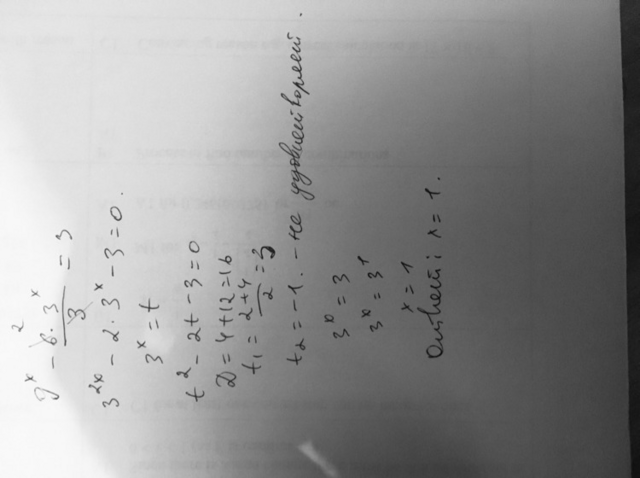 9^x - 6·3^x/3 = 3
2
3^2x - 2·3^x - 3 = 0.
3^x = t
t^2 - 2t - 3 = 0
D = 4 + 12 = 16
t1 = 2+4/2 = 3
t2 = -1. - не удовлетворяет.
3^x = 3
3^x = 3^1
x = 1
Ответ: x = 1.